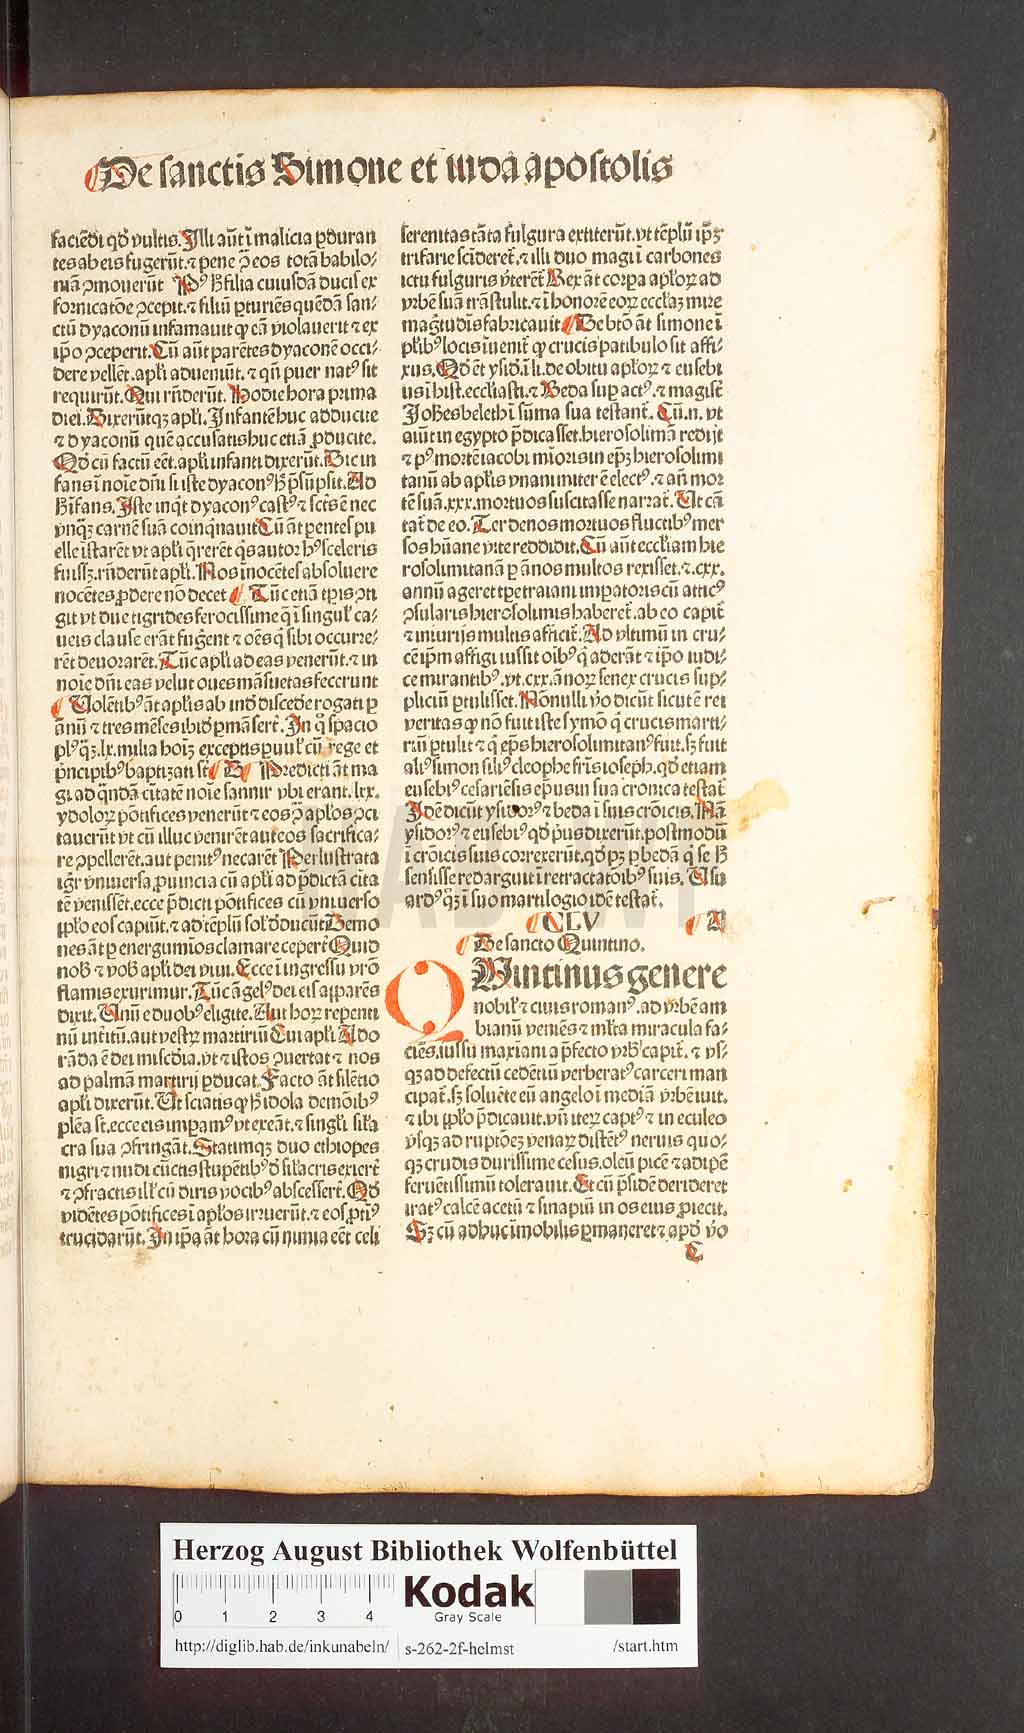 De sanctis Simone et iuda apostolis
faciēdi qđ vultis. Illi aūt ī malicia ꝑduran
tes ab eis fugerūt. ⁊ pene ꝓ eos totā babilo⸗
niā ꝯmouerūt Pꝰ h̄ filia cuiusdā ducis ex
fornicatōe ꝯcepit. ⁊ filiū ꝑturiēs quēdā san⸗
ctū dyaconū infamauit ꝙ eā violauerit ⁊ ex
ip̄o ꝯceperit. Cū aūt parētes dyaconē occi⸗
dere vellēt. apl̄i adueniūt. ⁊ qn̄ puer natꝰ sit
requirūt. Qui rn̄derūt. Hodie hora prima
diei. Dixerūtqꝫ apl̄i. Infantē huc adducite
⁊ dyaconū quē accusatis huc etiā ꝓducite.
Qđ cū factū eēt. apl̄i infanti dixerūt. Dic in
fans ī noīe dn̄i si iste dyaconꝰ h̄ p̄sūpsit. Ad
h̄ īfans. Iste inq̇t dyaconꝰ castꝰ ⁊ sct̄s ē nec
vnqꝫ carnē suā coinq̇nauit Cū āt ꝑentes pu
elle īstarēt vt apl̄i q̄rerēt q̇s autor hꝰ sceleris
fuissꝫ. rn̄derūt apl̄i. Nos īnocētes absoluere
nocētes ꝓdere nō decet Tūc etiā tꝑis ꝯti
git vt due tigrides ferocissime q̄ ī singul̓ ca⸗
ueis clause erāt fugēent ⁊ oēs q̇ sibi occurre⸗
rēt deuorarēt. Tūc apl̄i ad eas venerūt. ⁊ in
noīe dn̄i eas velut oues māsuetas fecerunt
Volētibꝰ āt apl̄is ab inđ discede rogati ꝑ
annū ⁊ tres mēses ibiđ ꝑmāsert̄. In q̇ spacio
plꝰ qꝫ. lx. milia hoīꝫ exceptis puul̓ cū rege et
p̄ncipibꝰ baptizati st̄ B Predicti āt ma
gi ad q̄ndā citatē noīe sannir vbi erant. lxx.
ydoloꝝ pōtifices venerūt ⁊ eos ꝯ apl̄os ꝯci
tauerūt vt cū illuc venirēt aut eos sacrifica⸗
re ꝯpellerēt. aut penitꝰ necarēt Perlustrata
igr̄ vniuersa ꝓuincia cū apl̄i ad p̄dictā cita
tē venissēt. ecce p̄dicti pōtifices cū vniuerso
ip̄lo eos capiūt. ⁊ ad tēplū sol̓ đducūt Demo
nes āt ꝑ energumīos clamare cepert̄ Quid
nob̄ ⁊ vob̄ apl̄i dei viui. Ecce ī ingressu vr̄o
flamis exurimur. Tūc āgelꝰ dei eis apparēs
dixit. Vnū e duobꝰ eligite. Aut hoꝝ repenti
nū īteritū. aut vestꝝ martiriū Cui apl̄i Ado
rāda ē dei misc̄dia. vt ⁊ istos ꝯuertat ⁊ nos
ad palmā martirij ꝑducat. Facto āt silētio
apl̄i dixerūt. Vt sciatis ꝙ h̄ idola demōibꝰ
plēa st̄. ecce eis imꝑamꝰ vt exeāt. ⁊ singl̓i sil̓a
cra sua ꝯfringāt. Statimqꝫ duo ethiopes
nigri ⁊ nudi cūctis stupētibꝰ đ sil̓acris exiert̄
⁊ ꝯfractis ill̓ cū diris vocibꝰ abscessert̄. Qđ
vidētes pōtifices ī apl̄os irruerūt. ⁊ eos ꝓtinꝰ
trucidarūt. In ip̄a āt hora cū nimia eēt celi
serenitas tāta fulgura extiterūt. vt tēplū ip̄ꝫ
trifarie scideret̄. ⁊ illi duo magi ī carbones
ictu fulguris ꝟterēt̄ Rex āt corꝑa apl̄oꝝ ad
vrbē suā trāstulit. ⁊ ī honorē eoꝝ eccl̄iaꝫ mire
magt̄udīs fabricauit De bt̄o āt simone ī
pl̄ibꝰ locis īuenit̄ ꝙ crucis patibulo sit affi⸗
xus. Qđ ēt ysid. ī li. de obitu apl̄oꝝ ⁊ eusebi
us ī hist. eccl̄iasti. ⁊ Beda suꝑ actꝰ. ⁊ magist̄
Iohēs beleth ī sūma sua testant̄. Cū. n. vt
aiūt in egypto p̄dicasset. hierosolimā redijt
⁊ pꝰ mortē iacobi mīoris in ep̄ꝫ hierosolimi
tanū ab apl̄is vnanimiter ē electꝰ. ⁊ añ mor
tē suā. xxx. mortuos suscitasse narrat̄. Vt cā
tat̄ de eo. Ter denos mortuos fluctibꝰ mer
sos hūane vite reddidit. Cū aūt eccl̄iam hie
rosolimitanā ꝑ ānos multos rexisset. ⁊. cxx.
annū ageret tꝑe traiani imꝑatoris cū atticꝰ
ꝯsularis hierosolimis haberet̄. ab eo capit̄
⁊ iniurijs multis afficit̄. Ad vltimū in cru⸗
cē ip̄m affigi iussit oībꝰ q̇ aderāt ⁊ ip̄o iudi⸗
ce mirantibꝰ. vt. cxx. ānoꝝ senex crucis sup⸗
pliciū ꝑtulisset. Nōnulli ꝟo dicūt sicut ē rei
veritas ꝙ nō fuit iste symō q̇ crucis marti⸗
riū ꝑtulit ⁊ q̇ ep̄s hierosolimitanꝰ fuit. sꝫ fuit
aliꝰ simon filiꝰ cleophe fr̄is ioseph. qđ etiam
eusebiꝰ cesariēsis ep̄us in sua cronica testat̄
Idē dicūt ysidorꝰ ⁊ beda ī suis crōicis. Nā
ysidorꝰ ⁊ eusebiꝰ qđ p̓us dixerūt. postmodū
ī crōicis suis correxerūt. qđ pꝫ ꝑ bedā q̇ se h̄
sensisse redarguit ī retractatōibꝰ suis. Vsu
ardꝰ qꝫ ī suo martilogio idē testat̄.
CLV A
De sancto Quintino.
QVintinus genere
nobil̓ ⁊ ciuis romanꝰ. ad vrbē am
bianū veniēs ⁊ ml̓ta miracula fa⸗
ciēs. iussu maxiani a p̄fecto vrb̓ capit̄. ⁊ vs⸗
qꝫ ad defectū cedētiū verberatꝰ carceri man
cipat̄. sꝫ soluēte eū angelo ī mediā vrbē iuit.
⁊ ibi ip̄lo p̄dicauit. vn̄ iteꝝ captꝰ ⁊ in eculeo
vsqꝫ ad ruptōeꝫ venaꝝ distētꝰ neruis quo⸗
qꝫ crudis durissime cesus. oleū picē ⁊ adipē
feruētissimū tolerauit. Et cū p̄sidē derideret
iratꝰ calcē acetū ⁊ sinapiū in os eius ꝓiecit.
Sꝫ cū adhuc īmobilis ꝑmaneret ⁊ apđ ꝟo
C
Herzog August Bibliothek Wolfenbüttel
0 1 2 3 4
Kodak
Gray Scale
http://diglib.hab.de/inkunabeln/ s-262-2f-helmst /start.htm